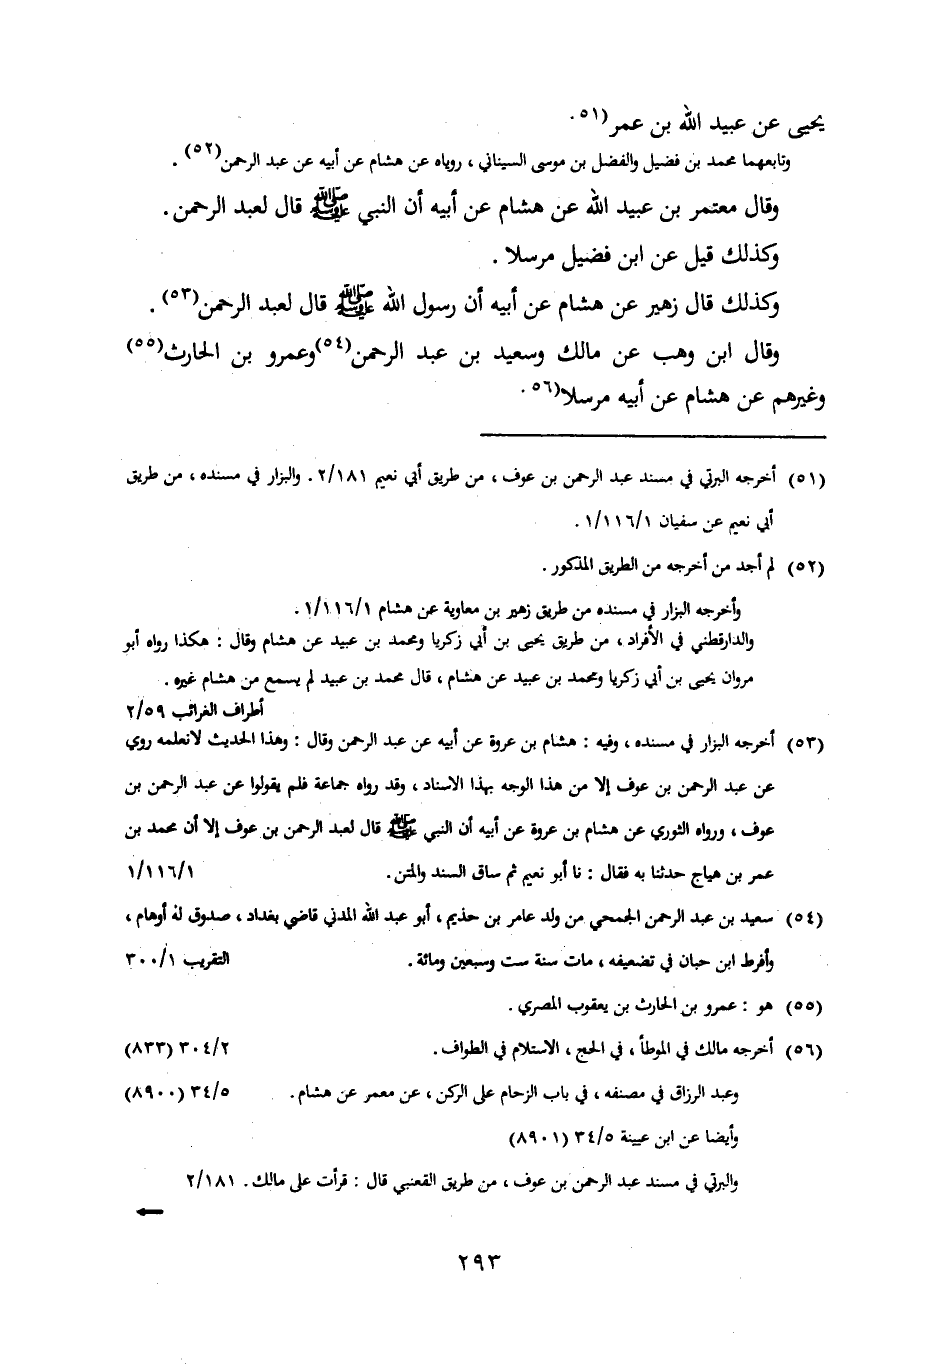 يحيى عن عبيد الله بن عمر(٥١).
وتابعهما محمد بن فضيل والفضل بن موسى السيناني ، روياه عن هشام عن أبيه عن عبد الرحمن(٥٢) .
وقال معتمر بن عبيد الله عن هشام عن أبيه أن النبي ﷺ قال لعبد الرحمن .
وكذلك قيل عن ابن فضيل مرسلا .
وكذلك قال زهير عن هشام عن أبيه أن رسول الله ﷺ قال لعبد الرحمن(٥٣) .
وقال ابن وهب عن مالك وسعيد بن عبد الرحمن(٥٤)وعمرو بن الحارث(٥٥)
وغيرهم عن هشام عن أبيه مرسلا(٥٦).
(٥١) أخرجه البرتي في مسند عبد الرحمن بن عوف ، من طريق أبي نعيم ٢/١٨١ . والبزار في مسنده ، من طريق
أبي نعيم عن سفيان ١/١١٦/١ .
(٥٢) لم أجد من أخرجه من الطريق المذكور .
وأخرجه البزار في مسنده من طريق زهير بن معاوية عن هشام ١/١١٦/١ .
والدارقطني في الأفراد ، من طريق يحيى بن أبي زكريا ومحمد بن عبيد عن هشام وقال : هكذا رواه أبو
مروان يحيى بن أبي زكريا ومحمد بن عبيد عن هشام ، قال محمد بن عبيد لم يسمع من هشام غيره .
أطراف الغرائب ٢/٥٩
(٥٣) أخرجه البزار في مسنده ، وفيه : هشام بن عروة عن أبيه عن عبد الرحمن وقال : وهذا الحديث لانعلمه روي
عن عبد الرحمن بن عوف إلا من هذا الوجه بهذا الاسناد ، وقد رواه جماعة فلم يقولوا عن عبد الرحمن بن
عوف ، ورواه الثوري عن هشام بن عروة عن أبيه أن النبي ﷺ قال لعبد الرحمن بن عوف إلا أن محمد بن
عمر بن هياج حدثنا به فقال : نا أبو نعيم ثم ساق السند والمتن . ١/١١٦/١
(٥٤) سعيد بن عبد الرحمن الجمحي من ولد عامر بن حذيم ، أبو عبد الله المدني قاضي بغداد ، صدوق له أوهام ،
وأفرط ابن حبان في تضعيفه ، مات سنة ست وسبعين ومائة . التقريب ٣٠٠/١
(٥٥) هو : عمرو بن الحارث بن يعقوب المصري .
(٥٦) أخرجه مالك في الموطأ ، في الحج ، الاستلام في الطواف . ٣٠٤/٢ (٨٣٣)
وعبد الرزاق في مصنفه ، في باب الزحام على الركن ، عن معمر عن هشام . ٣٤/٥ (٨٩٠٠)
وأيضا عن ابن عيينة ٣٤/٥ (٨٩٠١)
والبرتي في مسند عبد الرحمن بن عوف ، من طريق القعنبي قال : قرأت على مالك . ٢/١٨١
٢٩٣